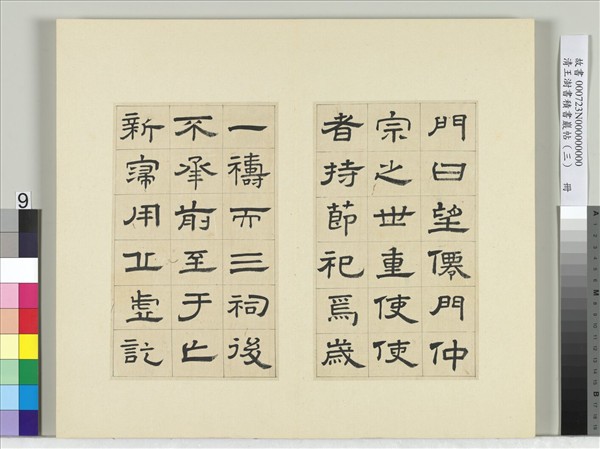 門曰望僊門仲
宗之世重使使
者持節祀焉歲
一禱而三祠後
不承前至于亡
新寖用丘虛訖
故書000723N000000000
清王澍書積書巖帖(三) 冊
9